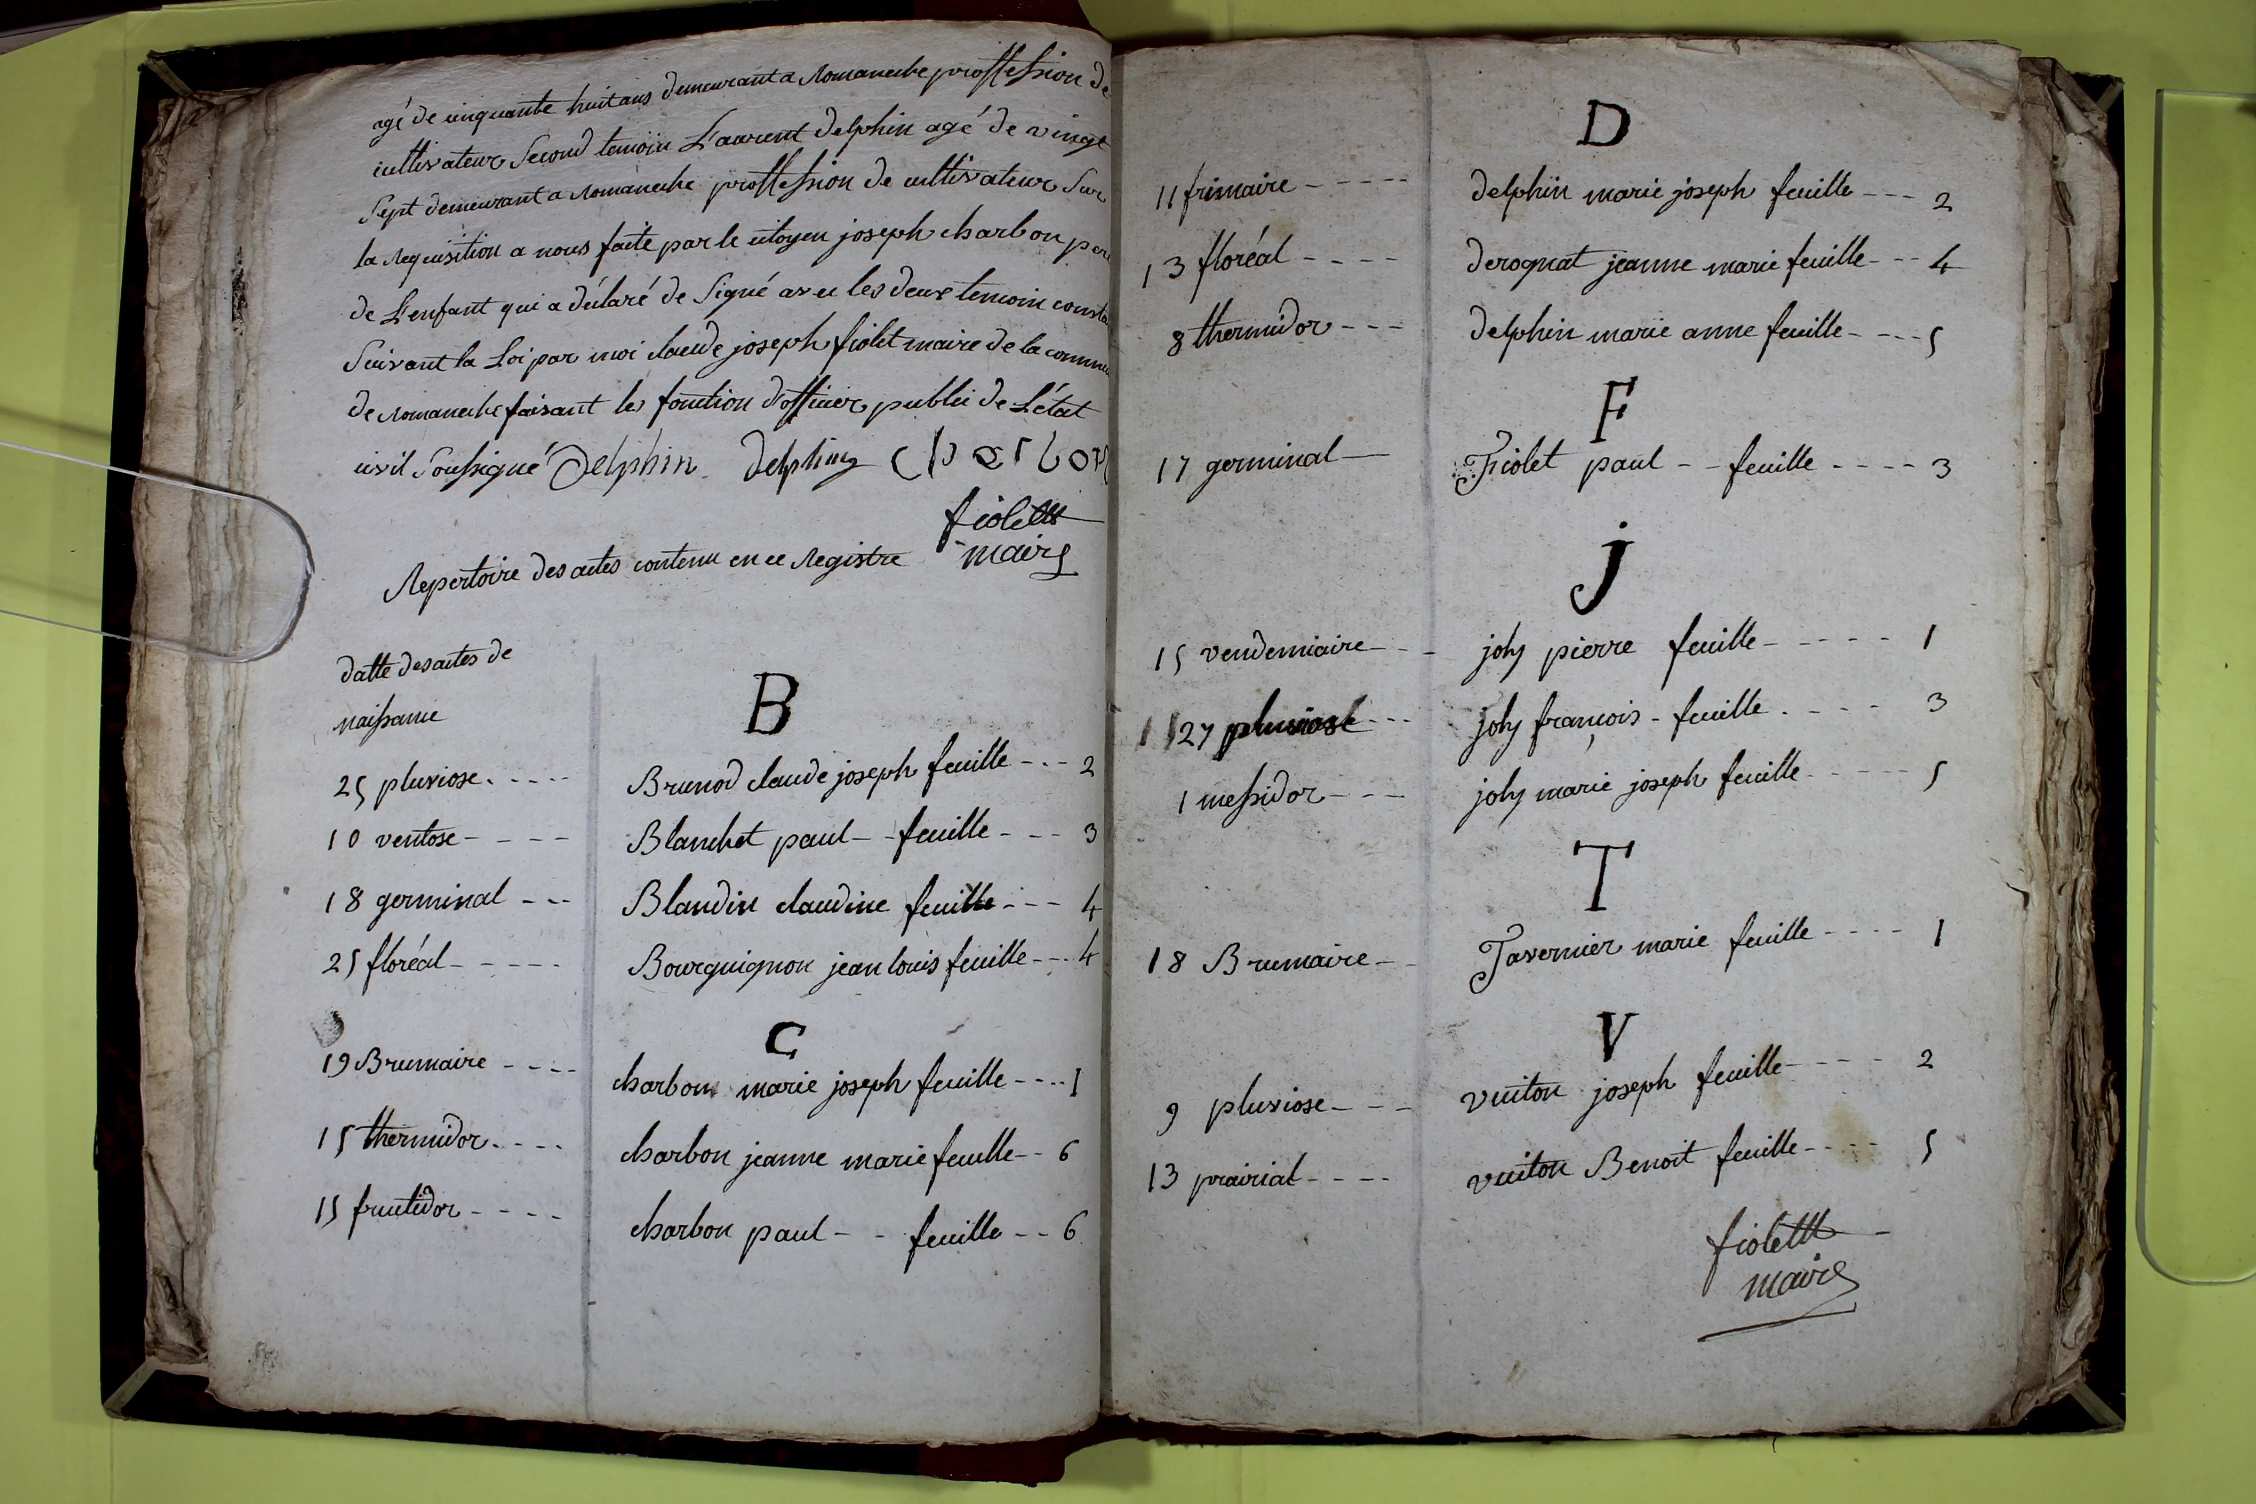 agé de cinquante huit ans demeurant a Romaneche proffession de
cultivateur Second temoin Laurent Delphin agé de vingt
Sept demeurant a Romaneche proffession de cultivateur Sur
la Requisition a nous faite par le citoyen joseph charbon pere
de L'enfant qui a déclaré de Signé avec les deux temoin consta
Suivant la Loi par moi claude joseph fiolet maire de la commune
de Romaneche faisant les fonction d'officier public de L'état
civil Soussigné Delphin Delphin charbon
fiolett
maire
Repertoire des actes contenu en ce Registre
datte des actes de
naissance
B
25 pluviose - - - - Brunod claude joseph feuille - - - 2
10 ventose - - - - Blanchet paul - - feuille - - - 3
18 germinal - - - Blandin claudine feuille - - - 4
25 floréal - - - - - Bourguignon jean louis feuille - - - 4
C
19 Brumaire - - - - charbon marie joseph feuille - - - - 1
15 thermidor - - - - charbon jeanne marie feuille - - 6
15 fructidor - - - - charbon paul - - feuille - - 6
D
11 frimaire - - - - - delphin marie joseph feuille - - - 2
13 floréal - - - - derognat jeanne marie feuille - - - 4
8 thermidor - - - delphin marie anne feuille - - - - 5
F
17 germinal - Fiolet paul - - feuille - - - - 3
j
15 vendemiaire - - - joly pierre feuille - - - - - 1
27 pluviose - - - joly françois - feuille - - - - 3
1 messidor - - - joly marie joseph feuille - - - - - 5
T
18 Brumaire - - Tavernier marie feuille - - - - 1
V
9 pluviose - - - vuiton joseph feuille - - - - 2
13 prairial - - - - vuiton Benoit feuille - - - - 5
fiolett
maire